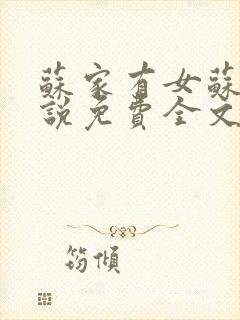 蘇家有女蘇
說免費全文
筠傾